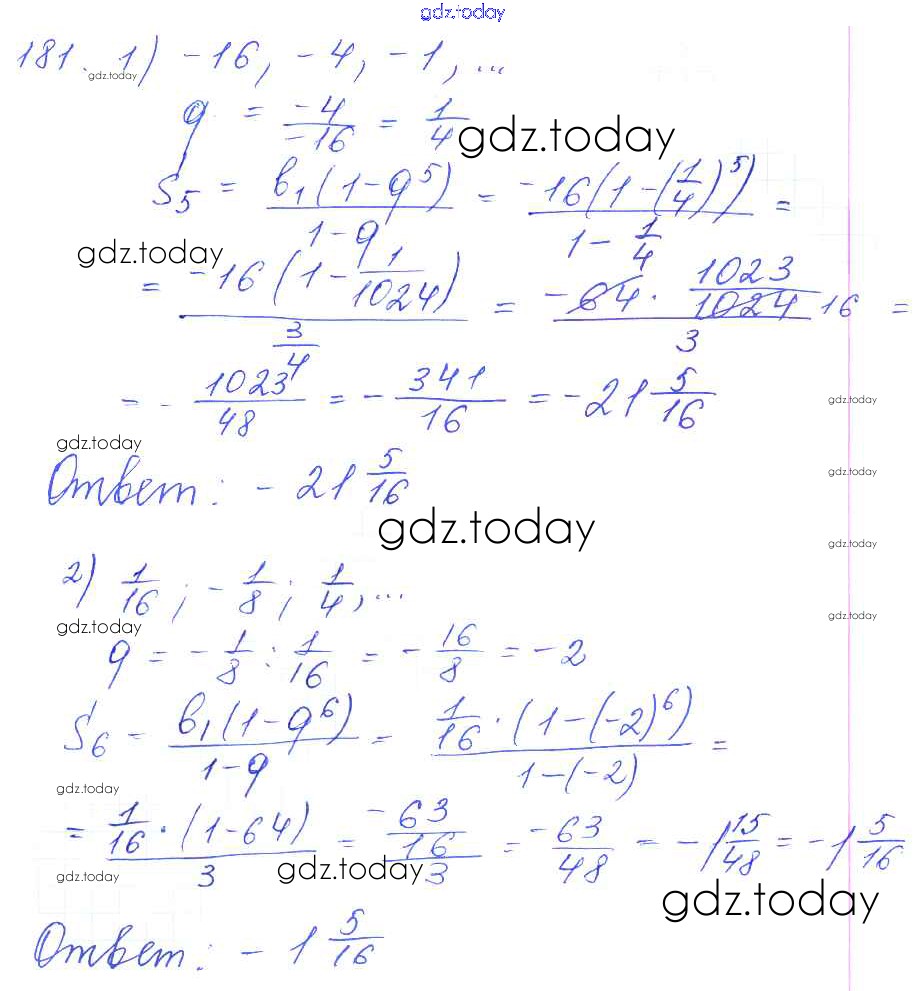 gdz.today
181. 1) -16, -4, -1, ...
gdz.today
q = -4/-16 = 1/4
gdz.today
S₅ = b₁(1-q⁵)/1-q = -16(1-(1/4)⁵)/1-1/4 =
gdz.today
= -16(1-1/1024)/(3/4) = -64 · 1023/1024 16/3 =
= -1023/48 = -341/16 = -21 5/16
gdz.today
gdz.today
gdz.today
Ответ: -21 5/16
gdz.today
gdz.today
2) 1/16; -1/8; 1/4, ...
gdz.today
gdz.today
q = -1/8 : 1/16 = -16/8 = -2
S₆ = b₁(1-q⁶)/1-q = 1/16 · (1-(-2)⁶)/1-(-2) =
gdz.today
= 1/16 · (1-64)/3 = -63/16/3 = -63/48 = -1 15/48 = -1 5/16
gdz.today
gdz.today
gdz.today
Ответ: -1 5/16